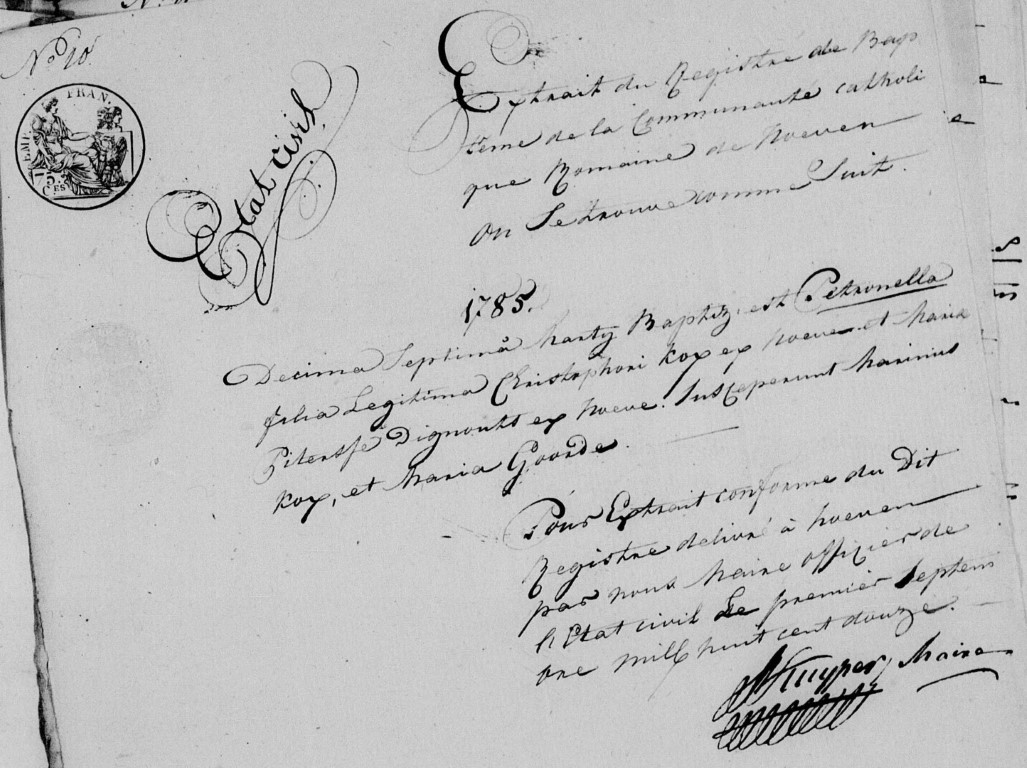 No 10
EMP. FRAN.
75.
Ces
Etat civil
Extrait du Registre de Bap
teme de la Communauté catholi
que Romaine de hoeven
ou Se trouve comme Suit.
1785.
Decima Septima Marty Baptiz. est Petronella
filia Legitima Christophori Kox ex hoeve et Maria
Dignouts ex hoeve. Susceperunt Marinus
Kox, et Maria Goorde.
Pour Extrait conforme du Dit
Registre delivré à hoeven
par nous Maire officier de
l'Etat civil Le premier Septem
bre mill huit cent douze.
Kuyper, Maire